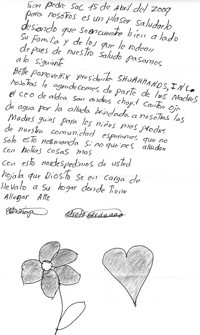 San pedro Sac 15 de Abril de 2009
para nosotros es un plaser saludarlo
desiando que se encuentre bien a lado
su familia y de los que le rodean
depues de nuestro saludo pasamos
a lo siguente
presidenta
nosotras le agradecemos de parte de las Madres
de agua por la alluda brindada a nosotras las
Madres guias para los niños mas, Madres
de nuestra comunidad esperamos que no
Solo esto nosbrinda si no que nos alludan
con hotras cosas mas
con esto nos despedimos de usted
hojala que Diosito se en carga de
llevalo a su lugar donde tiene
Allegar Atte